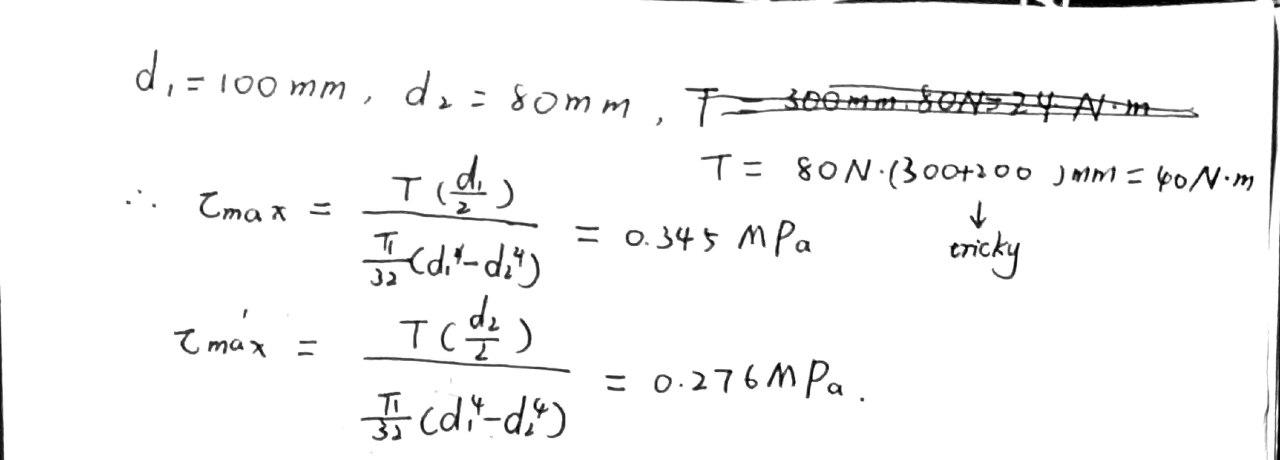 d₁ = 100 mm, d₂ = 80 mm, T = 300mm.80N=24 N·m
T = 80N·(300+200)mm = 40N·m
↓
tricky
∴ τmax = T(d₁/2) / π/32(d₁⁴-d₂⁴) = 0.345 MPa
τ'max = T(d₂/2) / π/32(d₁⁴-d₂⁴) = 0.276MPa.